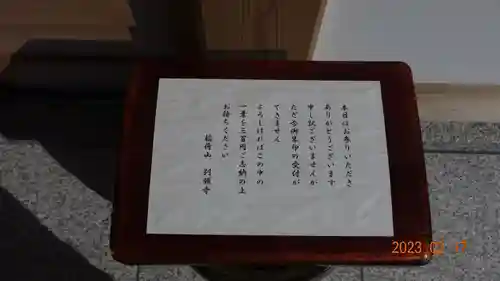 本日はお参りいただき
ありがとうございます
申し訳ございませんが
ただ今御朱印の受付が
できません
よろしければこの中の
一章を三百円ご志納の上
お持ちください
稲荷山
2023 02 17